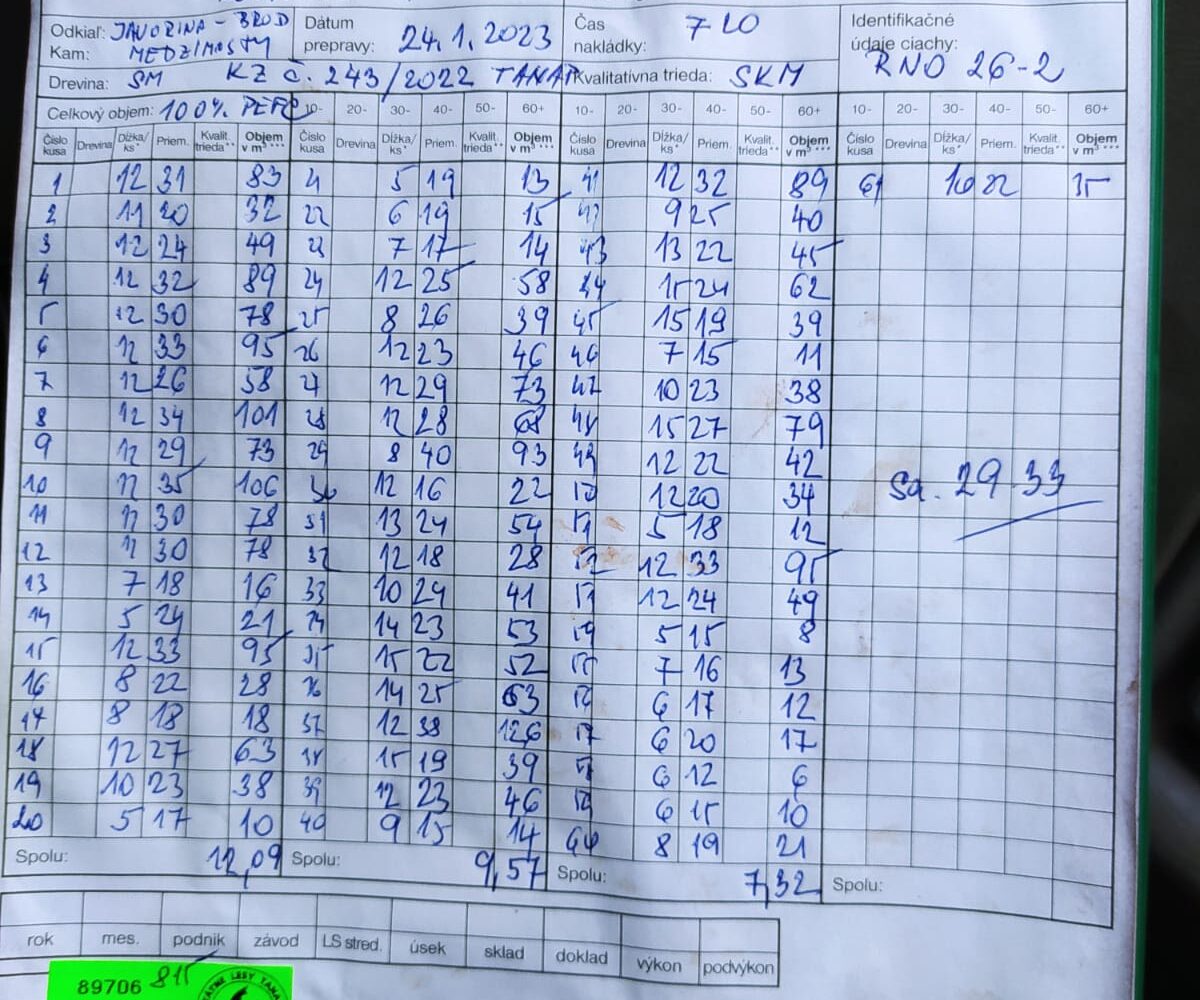 Odkiaľ: JAVORINA - BROD Dátum prepravy: 24.1.2023 Čas nakládky: 710 Identifikačné údaje ciachy: RNO 26-2
Kam: MEDZIMOSTY
Drevina: SM KZ č. 243/2022 TANAP Kvalitatívna trieda: SKM
Celkový objem: 100% PEFC 10- 20- 30- 40- 50- 60+ 10- 20- 30- 40- 50- 60+ 10- 20- 30- 40- 50- 60+
Číslo kusa Drevina Dĺžka/ks* Priem. Kvalit. trieda** Objem v m³*** Číslo kusa Drevina Dĺžka/ks* Priem. Kvalit. trieda** Objem v m³*** Číslo kusa Drevina Dĺžka/ks* Priem. Kvalit. trieda** Objem v m³*** Číslo kusa Drevina Dĺžka/ks* Priem. Kvalit. trieda** Objem v m³***
1 12 31 83 21 5 19 13 41 12 32 89 61 10 22 35
2 11 20 32 22 6 19 15 42 9 25 40
3 12 24 49 23 7 17 14 43 13 22 45
4 12 32 89 24 12 25 58 44 15 24 62
5 12 30 78 25 8 26 39 45 15 19 39
6 12 33 95 26 12 23 46 46 7 15 11
7 12 26 58 27 12 29 73 47 10 23 38
8 12 34 101 28 12 28 68 48 15 27 79
9 12 29 73 29 8 40 93 49 12 22 42
10 12 35 106 30 12 16 22 50 12 20 34
11 12 30 78 31 13 24 54 51 5 18 12
12 12 30 78 32 12 18 28 52 12 33 95
13 7 18 16 33 10 24 41 53 12 24 49
14 5 24 21 34 14 23 53 54 5 15 8
15 12 33 95 35 15 22 52 55 7 16 13
16 8 22 28 36 14 25 63 56 6 17 12
17 8 18 18 37 12 38 126 57 6 20 17
18 12 27 63 38 15 19 39 58 6 12 6
19 10 23 38 39 12 23 46 59 6 15 10
20 5 17 10 40 9 15 14 60 8 19 21
Sa. 29 33
Spolu: 12,09 Spolu: 9,57 Spolu: 7,32 Spolu:
rok mes. podnik závod LS stred. úsek sklad doklad výkon podvýkon
89706 815
LESY TANA